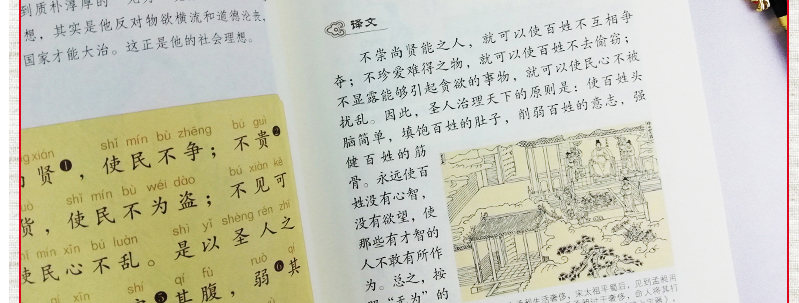 到质朴淳厚的
想，其实是他反对物欲横流和道德沦丧，
国家才能大治。这正是他的社会理想。
shǐ mín bù zhēng bú guì
贤❶，使民不争；不贵❷
shǐ mín bù wéi dào bú xiàn kě
货，使民不为盗；不见可
mín xīn bú luàn shì yǐ shèng rén zhī
民心不乱。是以圣人之
qí fù ruò qí
其腹，弱❻其
译文
不崇尚贤能之人，就可以使百姓不互相争
夺；不珍爱难得之物，就可以使百姓不去偷窃；
不显露能够引起贪欲的事物，就可以使民心不被
扰乱。因此，圣人治理天下的原则是：使百姓头
脑简单，填饱百姓的肚子，削弱百姓的意志，强
健百姓的筋
骨。永远使百
姓没有心智，
没有欲望，使
那些有才智的
人不敢有所作
为。总之，按
“无为”的
生活奢侈，宋太祖平蜀后，见到孟昶用